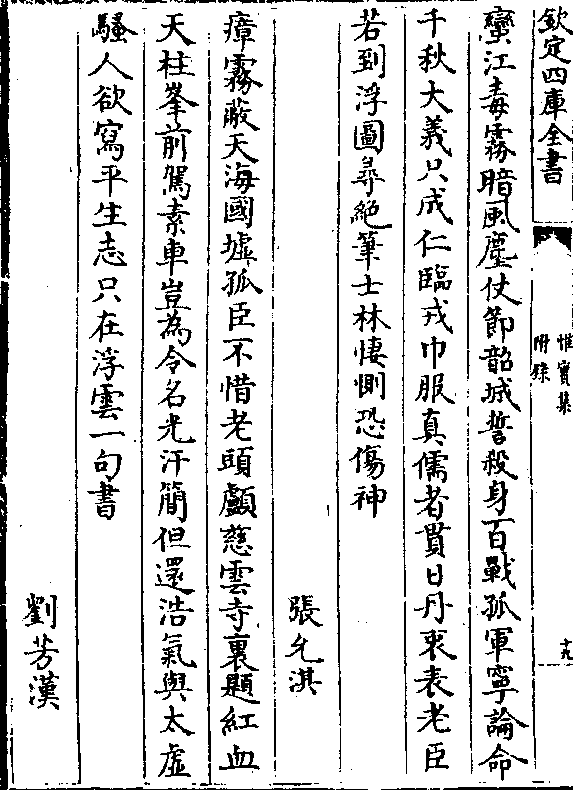 欽定四庫全書
惟實集
附錄
十九
蠻江毒霧暗風塵仗節韶城誓殺身百戰孤軍寧論命
千秋大義只成仁臨戎巾服真儒者貫日丹衷表老臣
若到浮圖尋絶筆士林悽惻恐傷神
張允淇
瘴霧蔽天海國墟孤臣不惜老頭顱慈雲寺裏題紅血
天柱峯前駕素車豈為令名光汗簡但還浩氣與太虛
騷人欲寫平生志只在浮雲一句書
劉芳漢